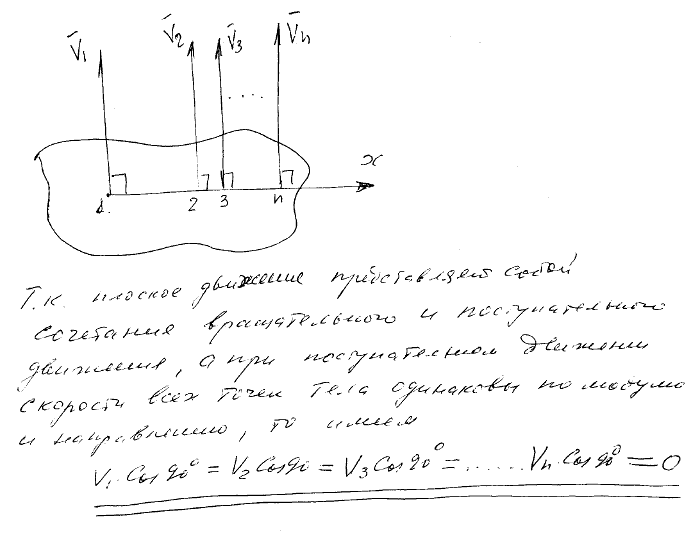 V̄₁ V̄₂ V̄₃ V̄n
....
x
1. 2 3 n
Т.к. плоское движение представляет собой
сочетание вращательного и поступательного
движения, а при поступательном движении
скорости всех точек тела одинаковы по модулю
и направлению, то имеем
V₁·Cos90° = V₂Cos90 = V₃Cos90° = ...... Vn·Cos90° = 0